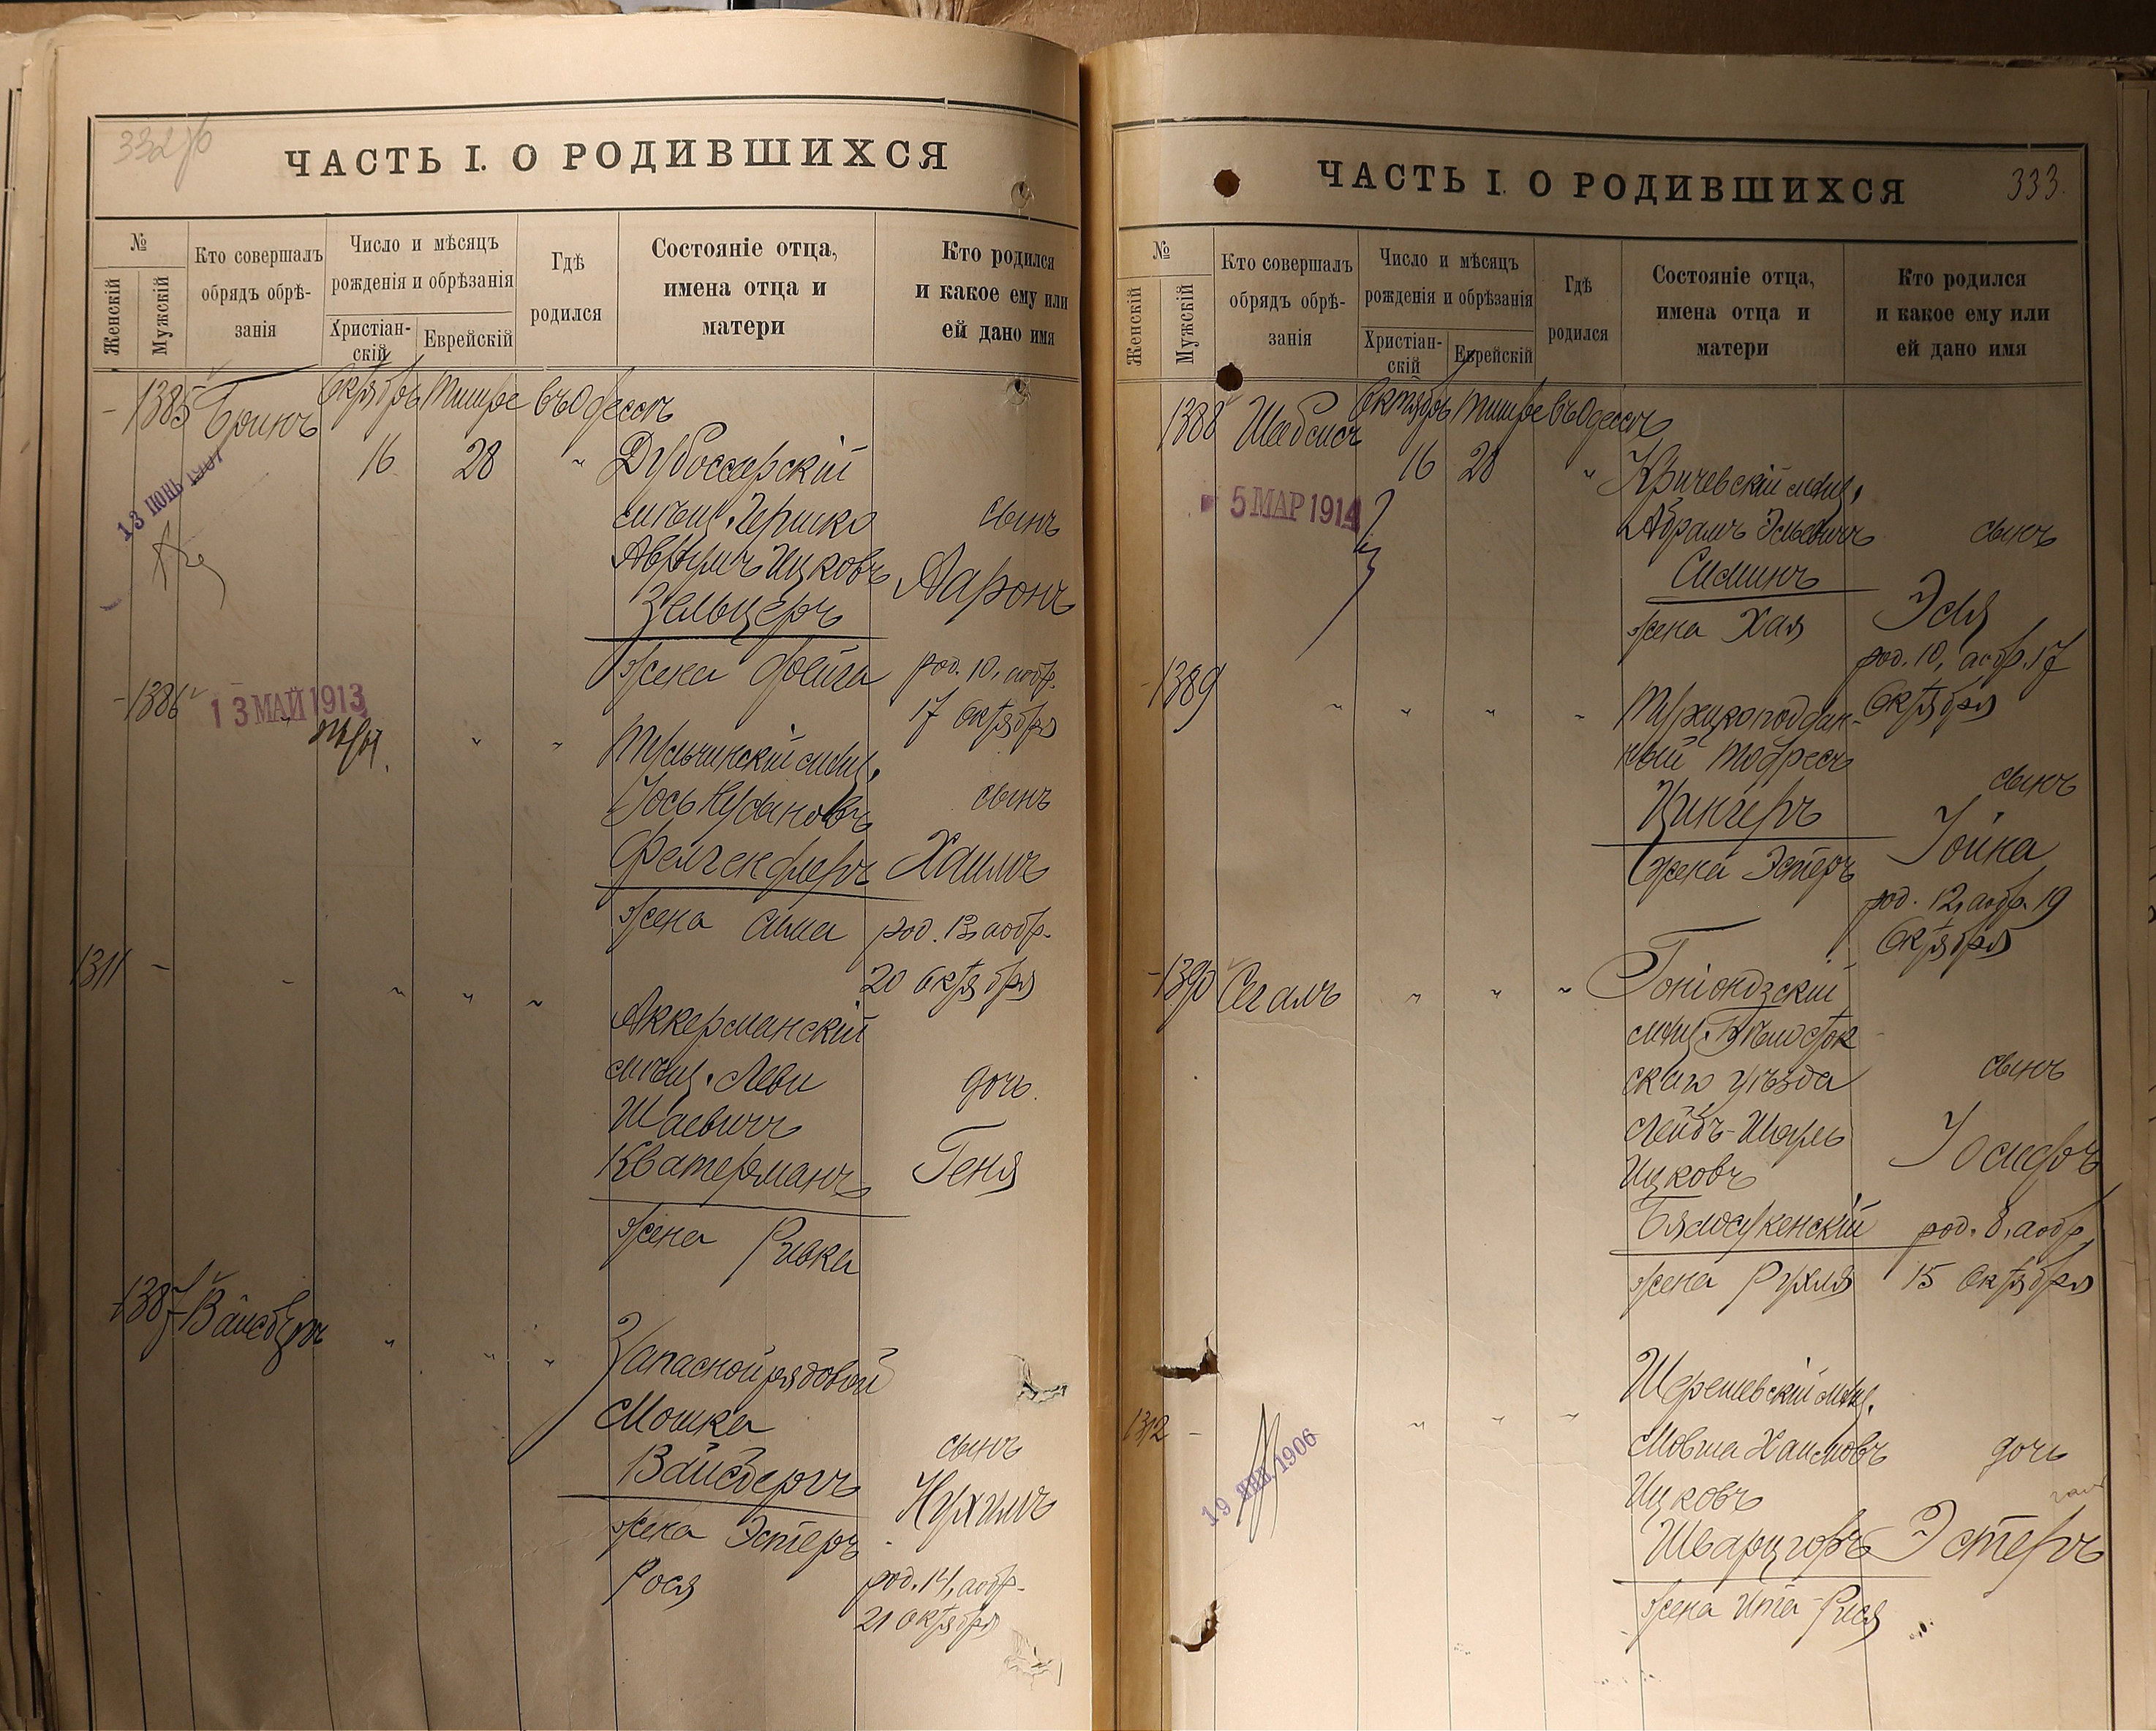 332 об
ЧАСТЬ I. О РОДИВШИХСЯ
№
Женскій
Мужскій
Кто совершалъ
обрядъ обрѣ-
занія
Число и мѣсяцъ
рожденія и обрѣзанія
Христіан-
скій
Еврейскій
Гдѣ
родился
Состояніе отца,
имена отца и
матери
Кто родился
и какое ему или
ей дано имя
- 1385 Бринъ Октябрь Тишре въ Одессѣ
16 28 " Дубоссарскій
мѣщ. Гершко сынъ
Аврумъ Ицковъ Ааронъ
Зельцеръ
жена Фейга род. 10, аобр.
17 Октября
13 ИЮНЬ 1907
- 1386 " " "
13 МАЙ 1913
Тульчинскій мѣщ.
Іось Нусыновъ сынъ
Фельгенфлеръ Хаимъ
жена Сима род. 13, аобр.
20 Октября
1311 - - " " "
Аккерманскій
мѣщ. Леви дочь
Шаевичъ
Кватерманъ Геня
жена Ривка
- 1387 Вайсбергъ " " "
Запасной рядовой
Мошка сынъ
Вайсбергъ Нухимъ
жена Эстеръ
Рося род. 14, аобр.
21 Октября
ЧАСТЬ I. О РОДИВШИХСЯ
333.
№
Женскій
Мужскій
Кто совершалъ
обрядъ обрѣ-
занія
Число и мѣсяцъ
рожденія и обрѣзанія
Христіан-
скій
Еврейскій
Гдѣ
родился
Состояніе отца,
имена отца и
матери
Кто родился
и какое ему или
ей дано имя
1388 Шабсисъ Октябрь Тишре въ Одессѣ
16 28 " Кричевскій мѣщ.
5 МАР 1914
Абрамъ Эльевичъ сынъ
Симинъ
жена Хая Эля
род. 10, аобр. 17
Октября
- 1389 " " " " Турецкоподдан-
ный Тобресъ сынъ
Цингеръ Іойна
жена Эстеръ
род. 12, аобр. 19
Октября
- 1390 Сегалъ " " " Гоніондзскій
мѣщ. Бѣлосток
скаго уѣзда сынъ
Лейбъ-Шарль
Ицковъ Іосифъ
жена Рухля род. 8, аобр.
15 Октября
1312 - " " "
19 ЯНВ. 1906
Шерешевскій мѣщ.
Мовша Хаимовъ дочь
Ицковъ
Шварцгоръ Эстеръ
жена Ита-Рися